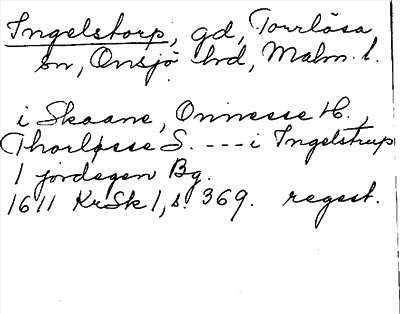 Ingelstorp, gd, Torrlösa
sn, Onsjö hd, Malm. l.
i Skaane, Onnesse H.,
Thorløsse S. --- i Ingelstrup
1 jordegen Bg.
1611 KrSk 1, s. 369. regest.